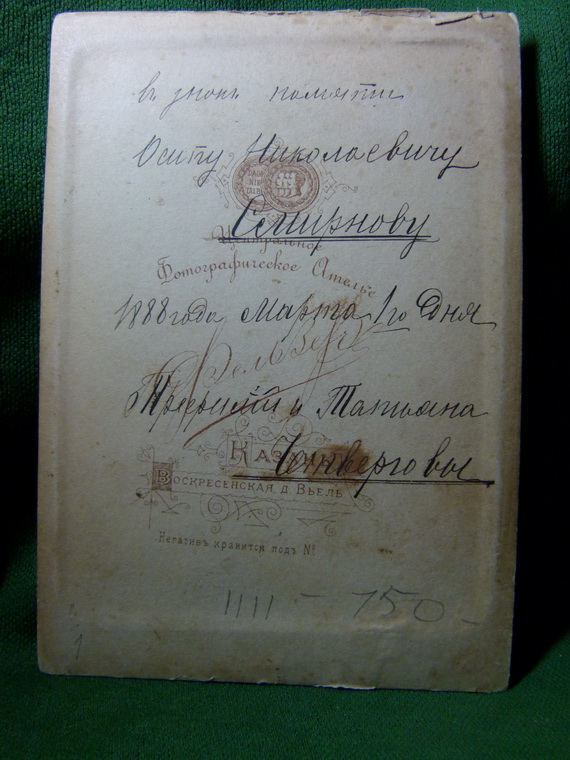 въ знакъ памяти
Осипу Николаевичу
Смирнову
Центральное
Фотографическое Ателье
1888 года Марта 1го Дня
и Татьяна
Казань
Четверговы
Воскресенская, д. Вьель
Негативъ хранится подъ №
1111 - 150 -
1